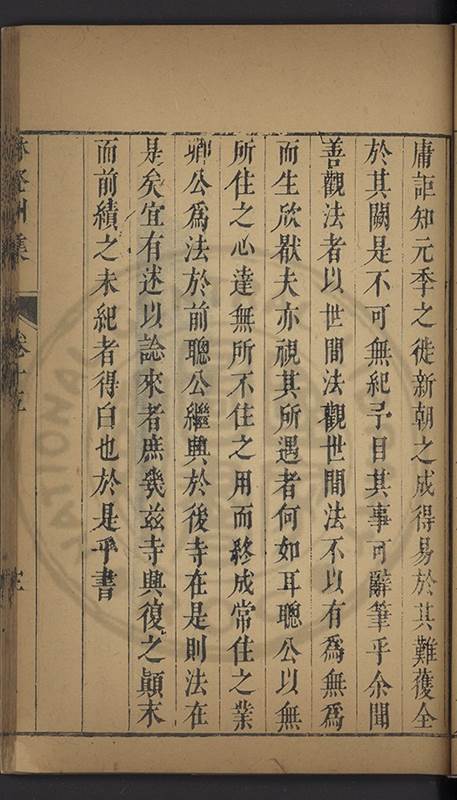 庸詎知元季之徙新朝之成得易於其難獲全
於其闕是不可無紀予目其事可辭筆乎余聞
善觀法者以世間法觀世間法不以有爲無爲
而生欣猒夫亦視其所遇者何如耳聰公以無
所住之心達無所不住之用而終成常住之業
卿公爲法於前聰公繼興於後寺在是則法在
是矣宜有述以諗來者庶幾兹寺興復之顛末
而前績之未紀者得白也於是乎書
集
卷十五